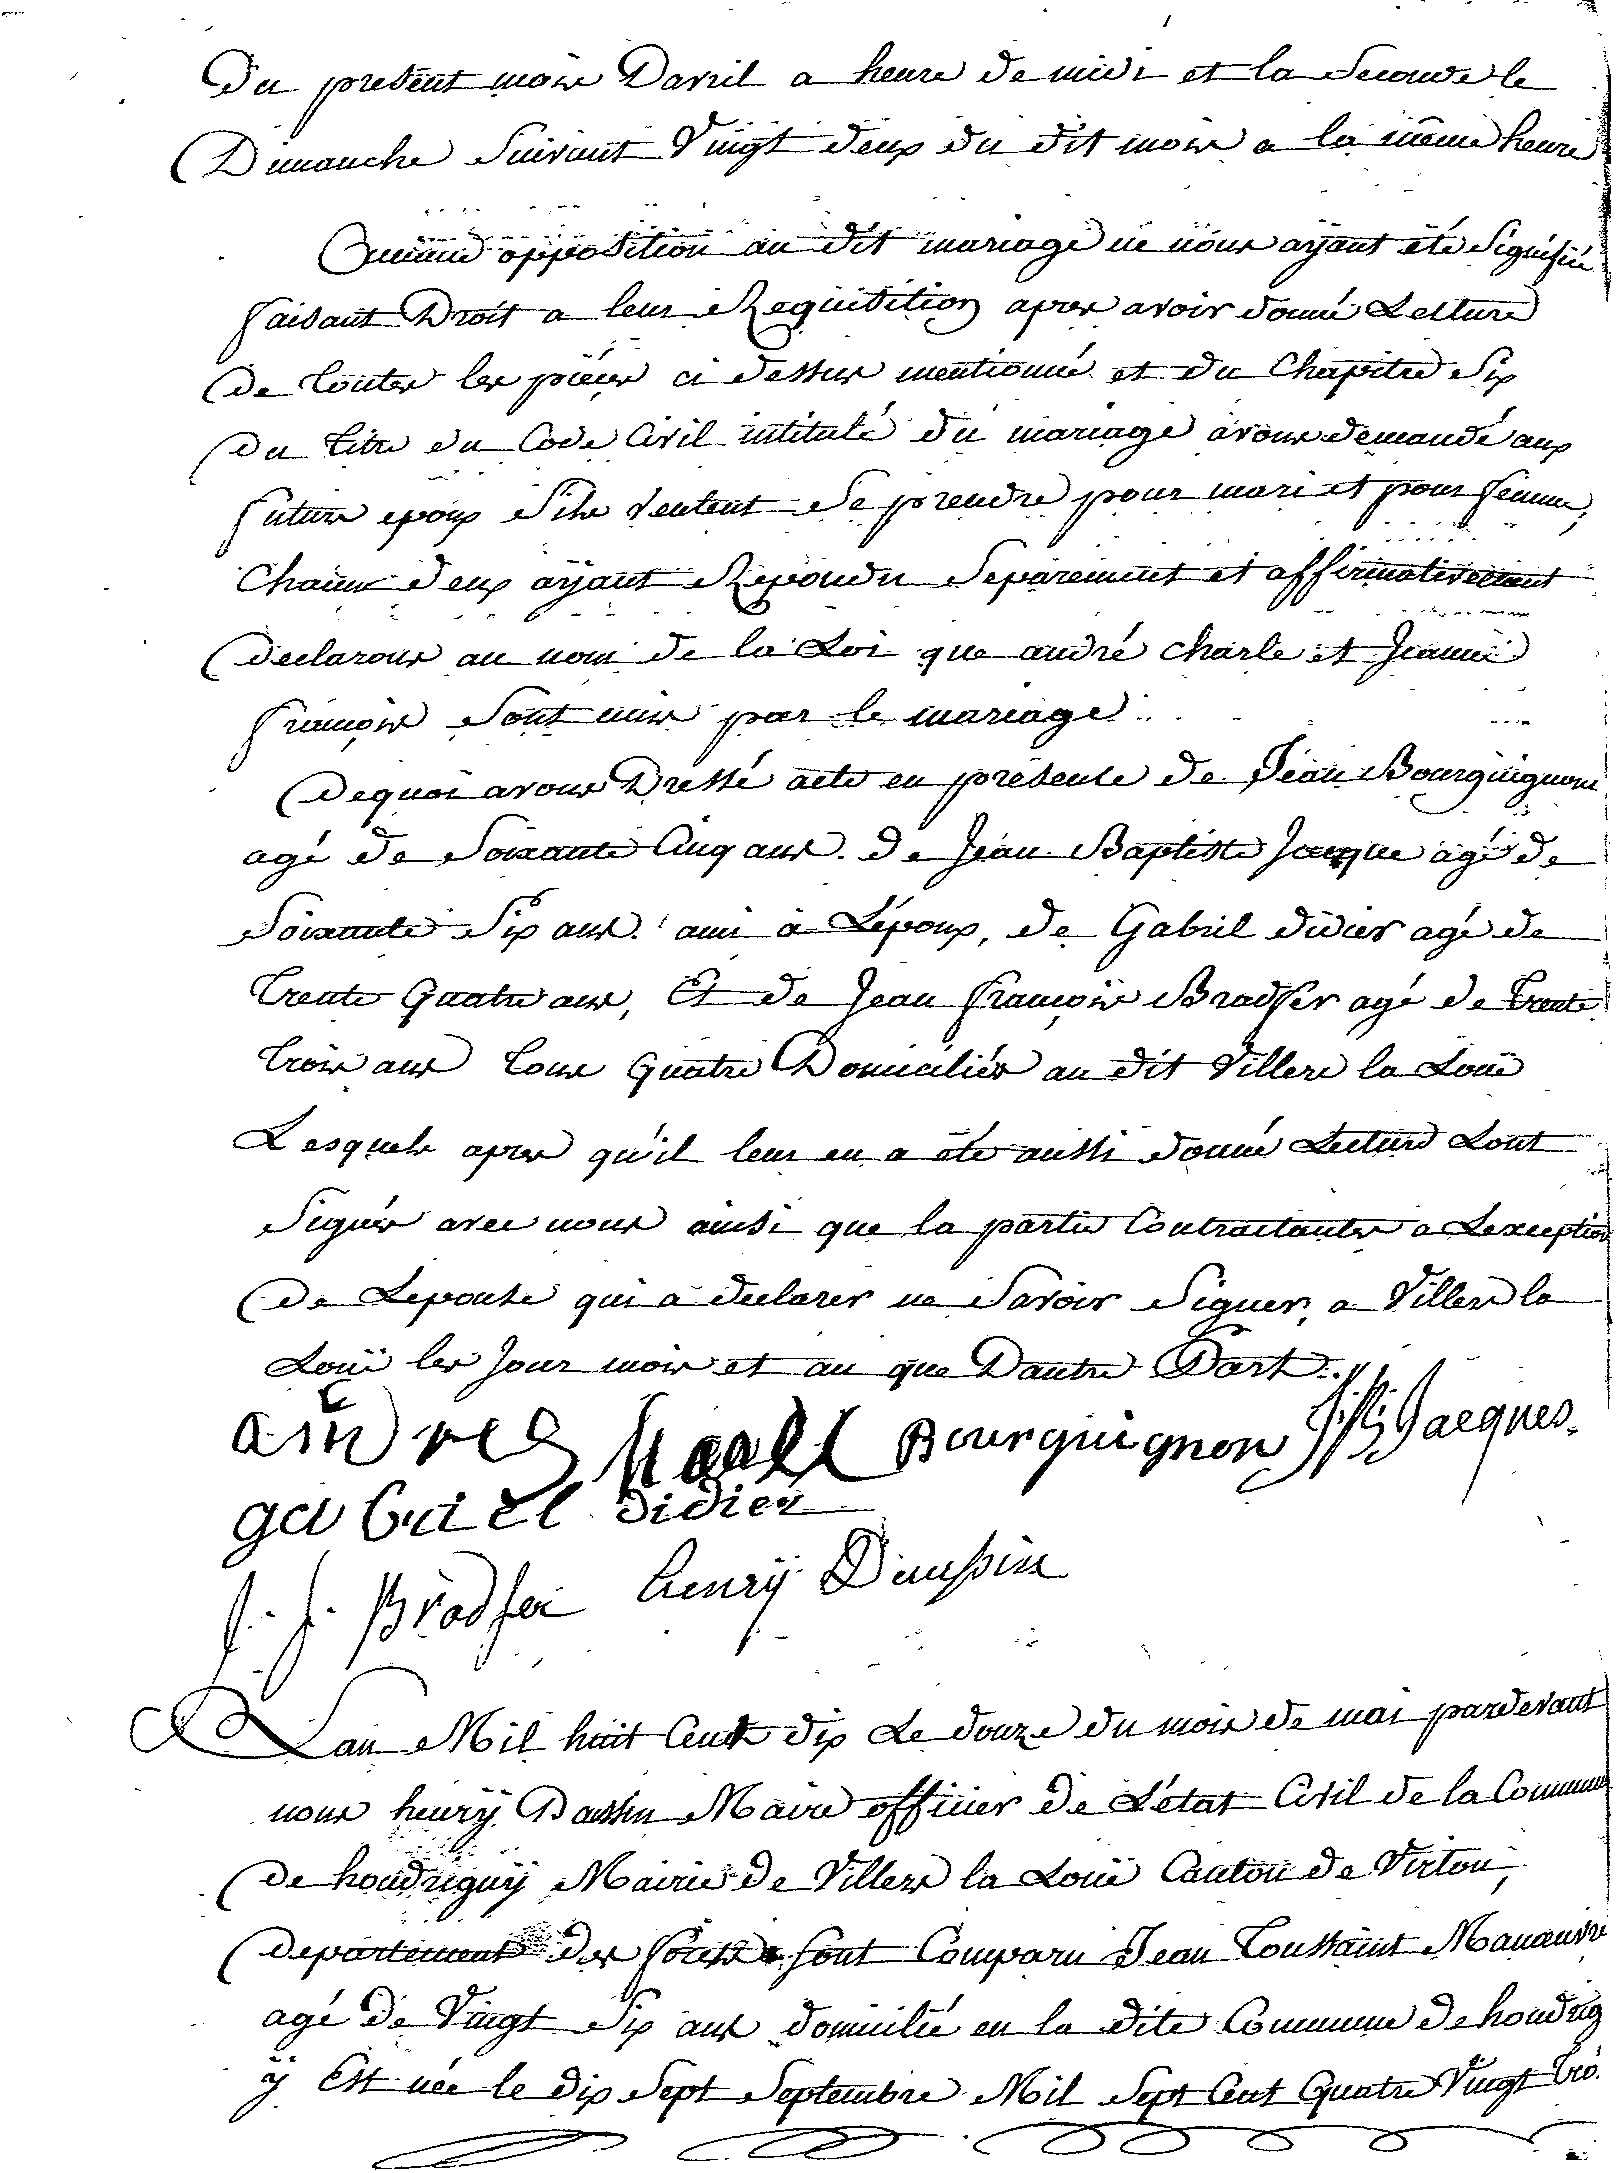 Du present mois Davril a heure de midi et la Seconde le
Dimanche Suivant Vingt deux du dit mois a la même heure
Aucune opposition au dit mariage ne nous ayant été Signifiée
faisant Droit a leur Requisition apres avoir donné Lecture
de toutes les piéces ci dessus mentionné et du Chapitre Six
du titre du Code Civil intitulé du mariage avons demandé aux
futurs epoux S'ils veulent Se prendre pour mari et pour femme,
Chacun deux ayant Repondu Séparément et affirmativement
declarons au nom de la Loi que andré charle et Jeanne
françois Sont unis par le mariage
de quoi avons Dressé acte en présence de Jean Bourguignon
agé de Soixante Cinq ans. de Jean Baptiste Jacque agé de
Soixante Six ans. ami à Lépoux, de Gabriel didier agé de
trente quatre ans, Et de Jean françois Bradfer agé de trente
trois ans tous quatre Domiciliés au dit Villers la Louë
Lesquels apres qu'il leur en a été aussi donné Lecture Lont
Signés avec nous ainsi que la partie Contractantes a Lexception
de Lepouse qui a declarer ne Savoir Signer, a Villers la
Louë les Jour mois et an que Dautre Part.
andré Charle Bourguignon J: B: Jacques.
gabriel didier
J. f. Bradfer henrÿ Daussin
Lan Mil huit Cent dix Le douze du mois de mai pardevant
nous henrÿ Daussin Maire officier de L'état Civil de la Commune
de houdrignÿ Mairie de Villers la Louë Canton de Virton,
departement des forets Sont Comparu Jean Toussaint Manœuvre
agé de Vingt Six ans domicilié en la dite Commune de houdrig
ÿ Est née le dix Sept Septembre Mil Sept Cent Quatre Vingt tro.